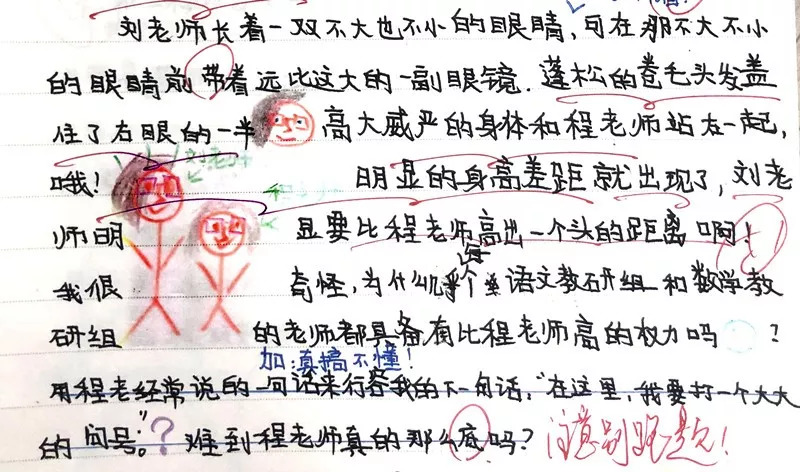 刘老师长着一双不大也不小的眼睛,可在那不大不小
的眼睛前带着远比这大的一副眼镜.蓬松的卷毛头发盖
住了右眼的一半 高大威严的身体和程老师站在一起,
哦! 明显的身高差距就出现了,刘老
师明 显要比程老师高出一个头的距离啊!
我很 奇怪,为什么每个语文教研组和数学教
研组 的老师都具备有比程老师高的权力吗?
加:真搞不懂!
用程老经常说的一句话来形容我的下一句话,“在这里,我要打一个大大
的问号。”? 难到程老师真的那么底吗? 注意别跑题!